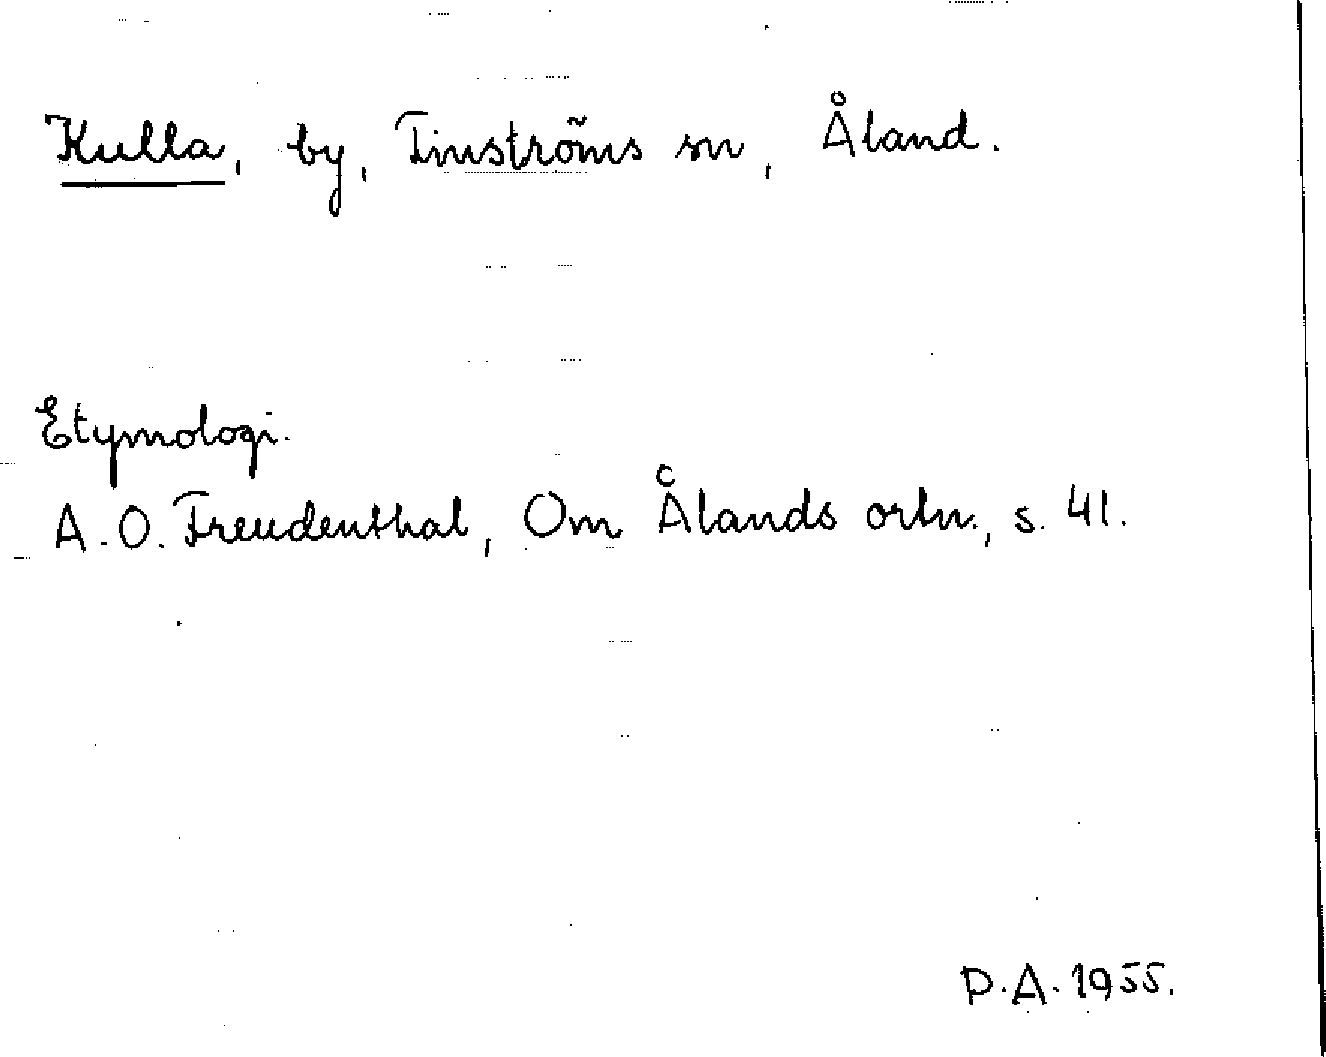 Kulla, by, Finströms sn, Åland.
Etymologi.
A.O. Freudenthal, Om Ålands ortn., s. 41.
P.A. 1955.